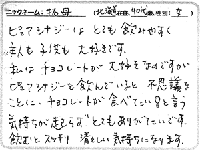 ニックネーム：坊母 （北海道在住 40代 女）
ピュアシナジーは とても飲みやすく
主人も子供も大好きです。
私は チョコレートが大好きなのですが
ピュアシナジーを飲んでいると 不思議な
ことに、チョコレートが食べたい！と言う
気持ちが起こらず とてもありがたいです。
飲むと スッキリ 清々しい気持ちになります。